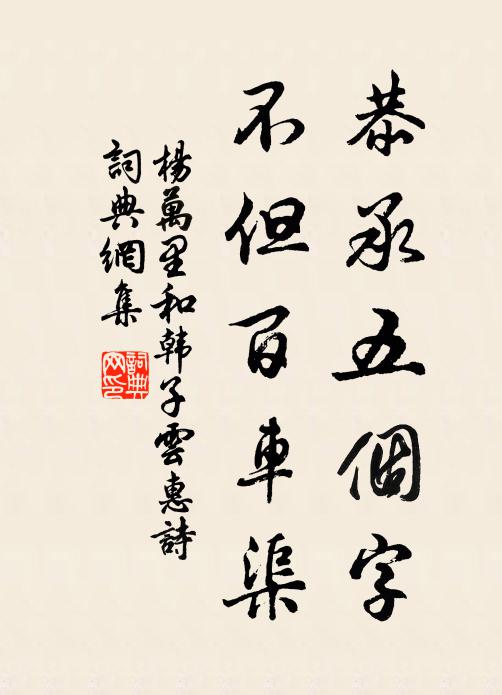 恭承五個字
不但百車渠
楊萬里和韩子雲惠詩
詞典網集
詞典网印